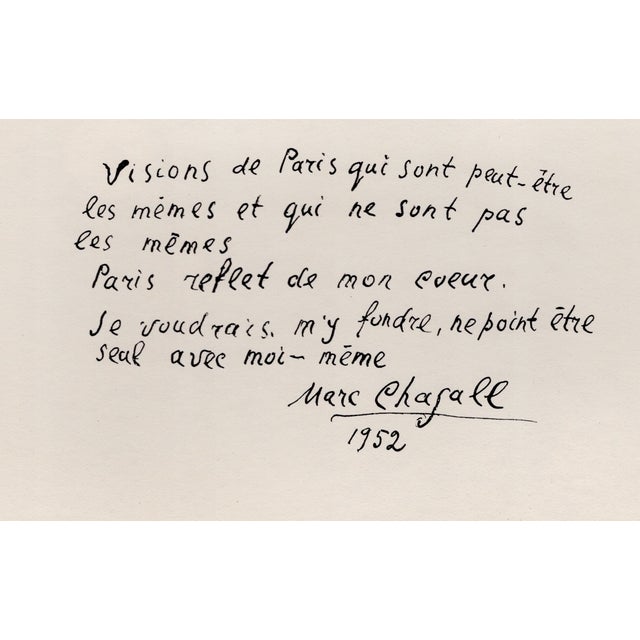 Visions de Paris qui sont peut-être
les mêmes et qui ne sont pas
les mêmes
Paris reflet de mon coeur.
Je voudrais m'y fondre, ne point être
seul avec moi-même
Marc Chagall
1952